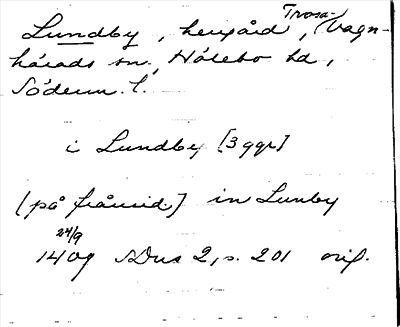 Lundby, herrgård, Trosa-Vagn-
härads sn., Hölebo hd,
Söderm. l.
i Lundby [3 ggr]
[på frånsid.] in Lunby
24/9
1409 SDns 2, s. 201 orig.